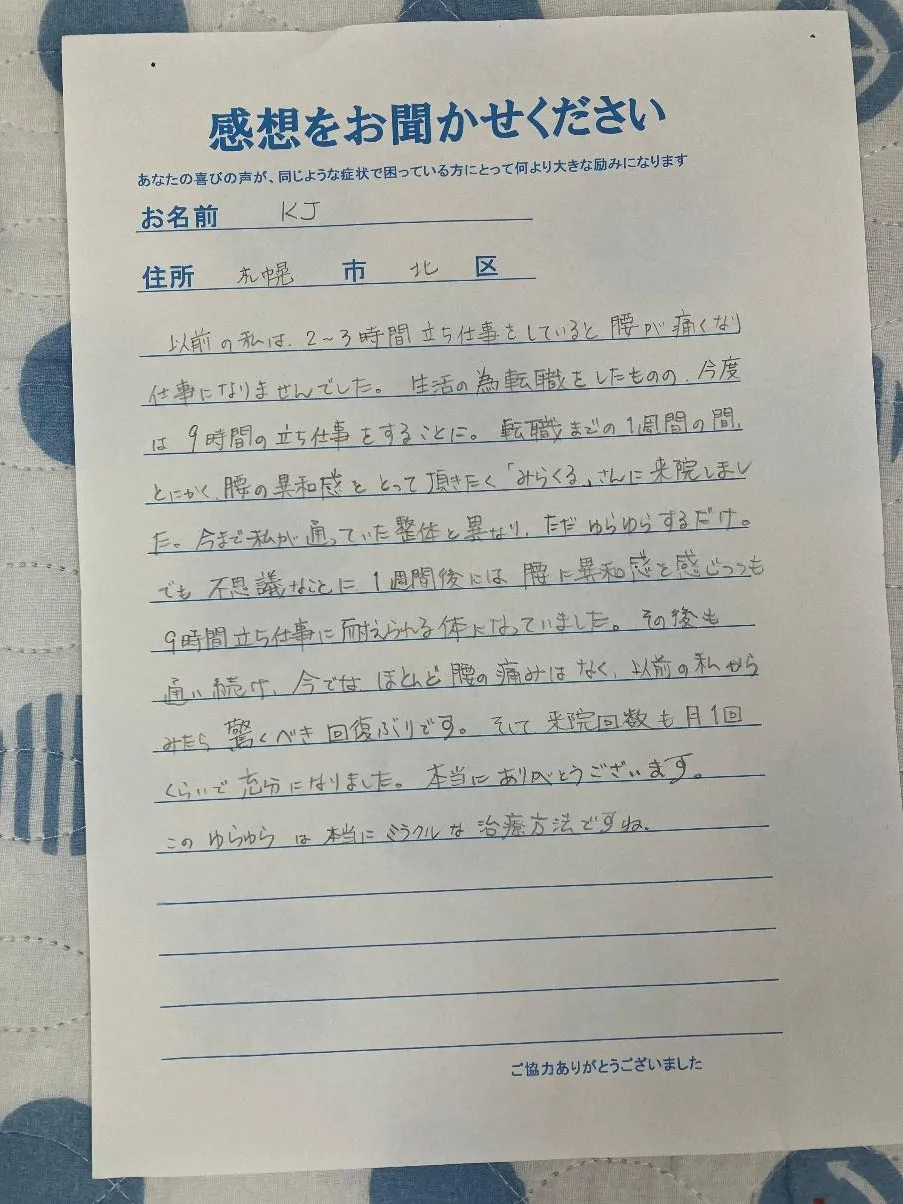 感想をお聞かせください
あなたの喜びの声が、同じような症状で困っている方にとって何より大きな励みになります
お名前 KJ
住所 札幌 市 北 区
以前の私は、2〜3時間立ち仕事をしていると腰が痛くなり
仕事になりませんでした。生活の為転職をしたものの、今度
は9時間の立ち仕事をすることに。転職までの1週間の間、
とにかく腰の異和感をとって頂きたく「みらくる」さんに来院しまし
た。今まで私が通っていた整体と異なり、ただゆらゆらするだけ。
でも不思議なことに、1週間後には腰に異和感を感じつつも
9時間立ち仕事に耐えられる体になっていました。その後も
通い続け、今ではほとんど腰の痛みはなく、以前の私から
みたら驚くべき回復ぶりです。そして来院回数も月1回
くらいで充分になりました。本当にありがとうございます。
このゆらゆらは本当にミラクルな治療方法ですね。
ご協力ありがとうございました